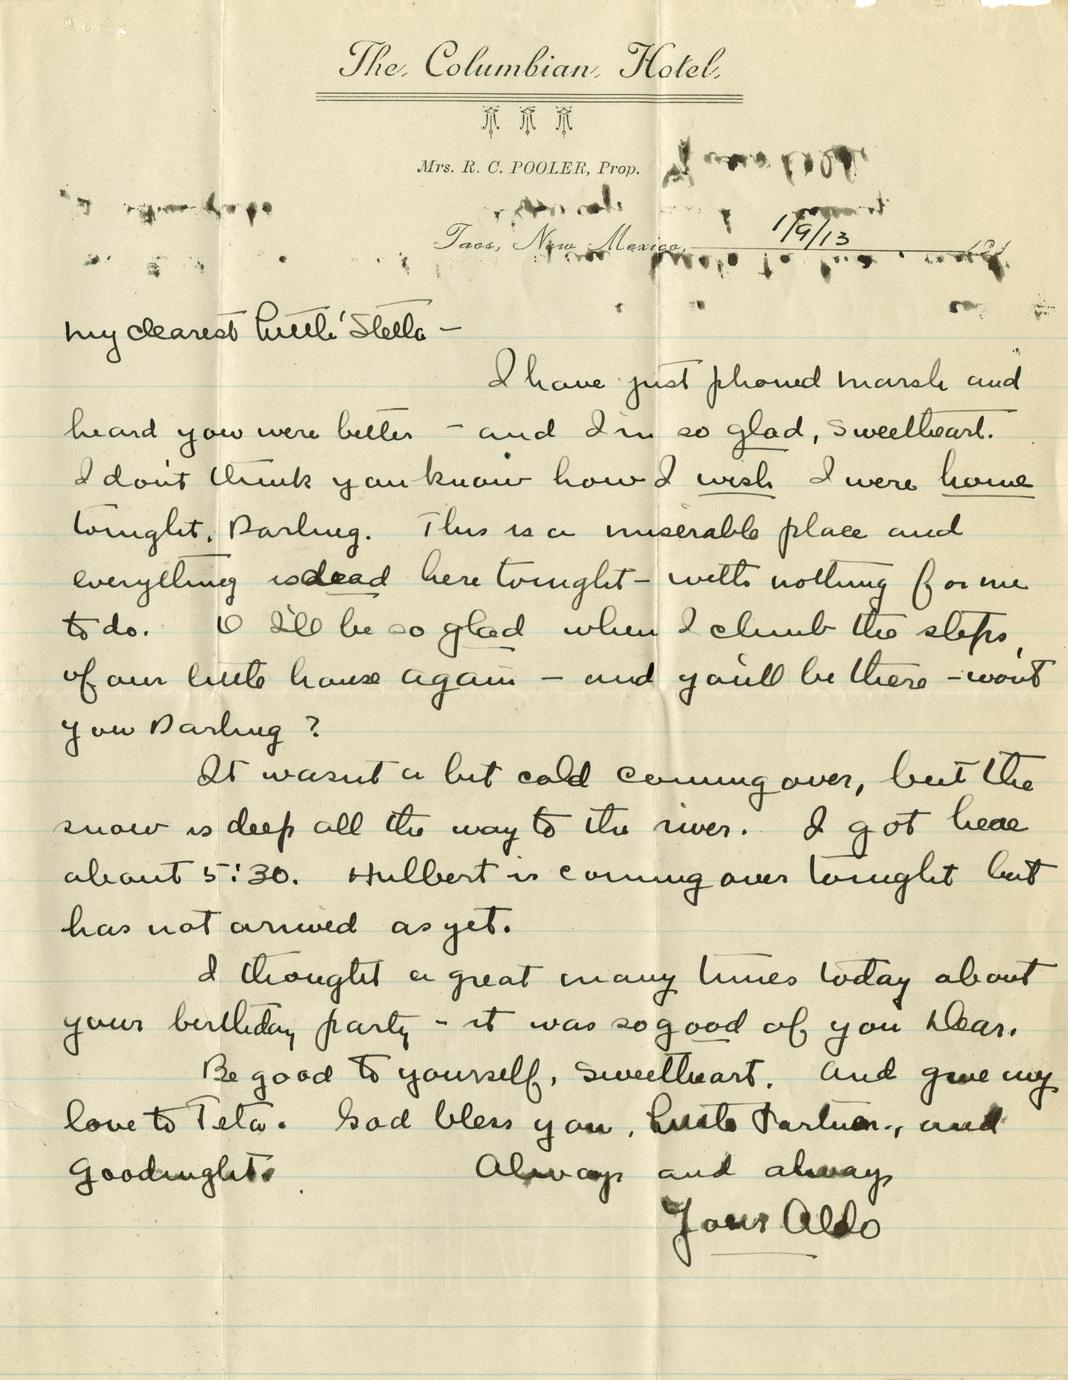 The Columbian Hotel
Mrs. R. C. POOLER, Prop.
Taos, New Mexico, 1/9/13 191
My dearest little Stella –
I have just phoned Marsh and
heard you were better – and I'm so glad, sweetheart.
I don't think you know how I wish I were home
tonight, Darling. This is a miserable place and
everything is dead here tonight – with nothing for me
to do. O I'll be so glad when I climb the steps,
of our little house again – and you'll be there – won't
you Darling?
It wasn't a bit cold coming over, but the
snow is deep all the way to the river. I got here
about 5:30. Hulbert is coming over tonight but
has not arrived as yet.
I thought a great many times today about
your birthday party – it was so good of you Dear.
Be good to yourself, sweetheart. And give my
love to Teta. God bless you, little Partner, and
Goodnight. Always and always
Your Aldo